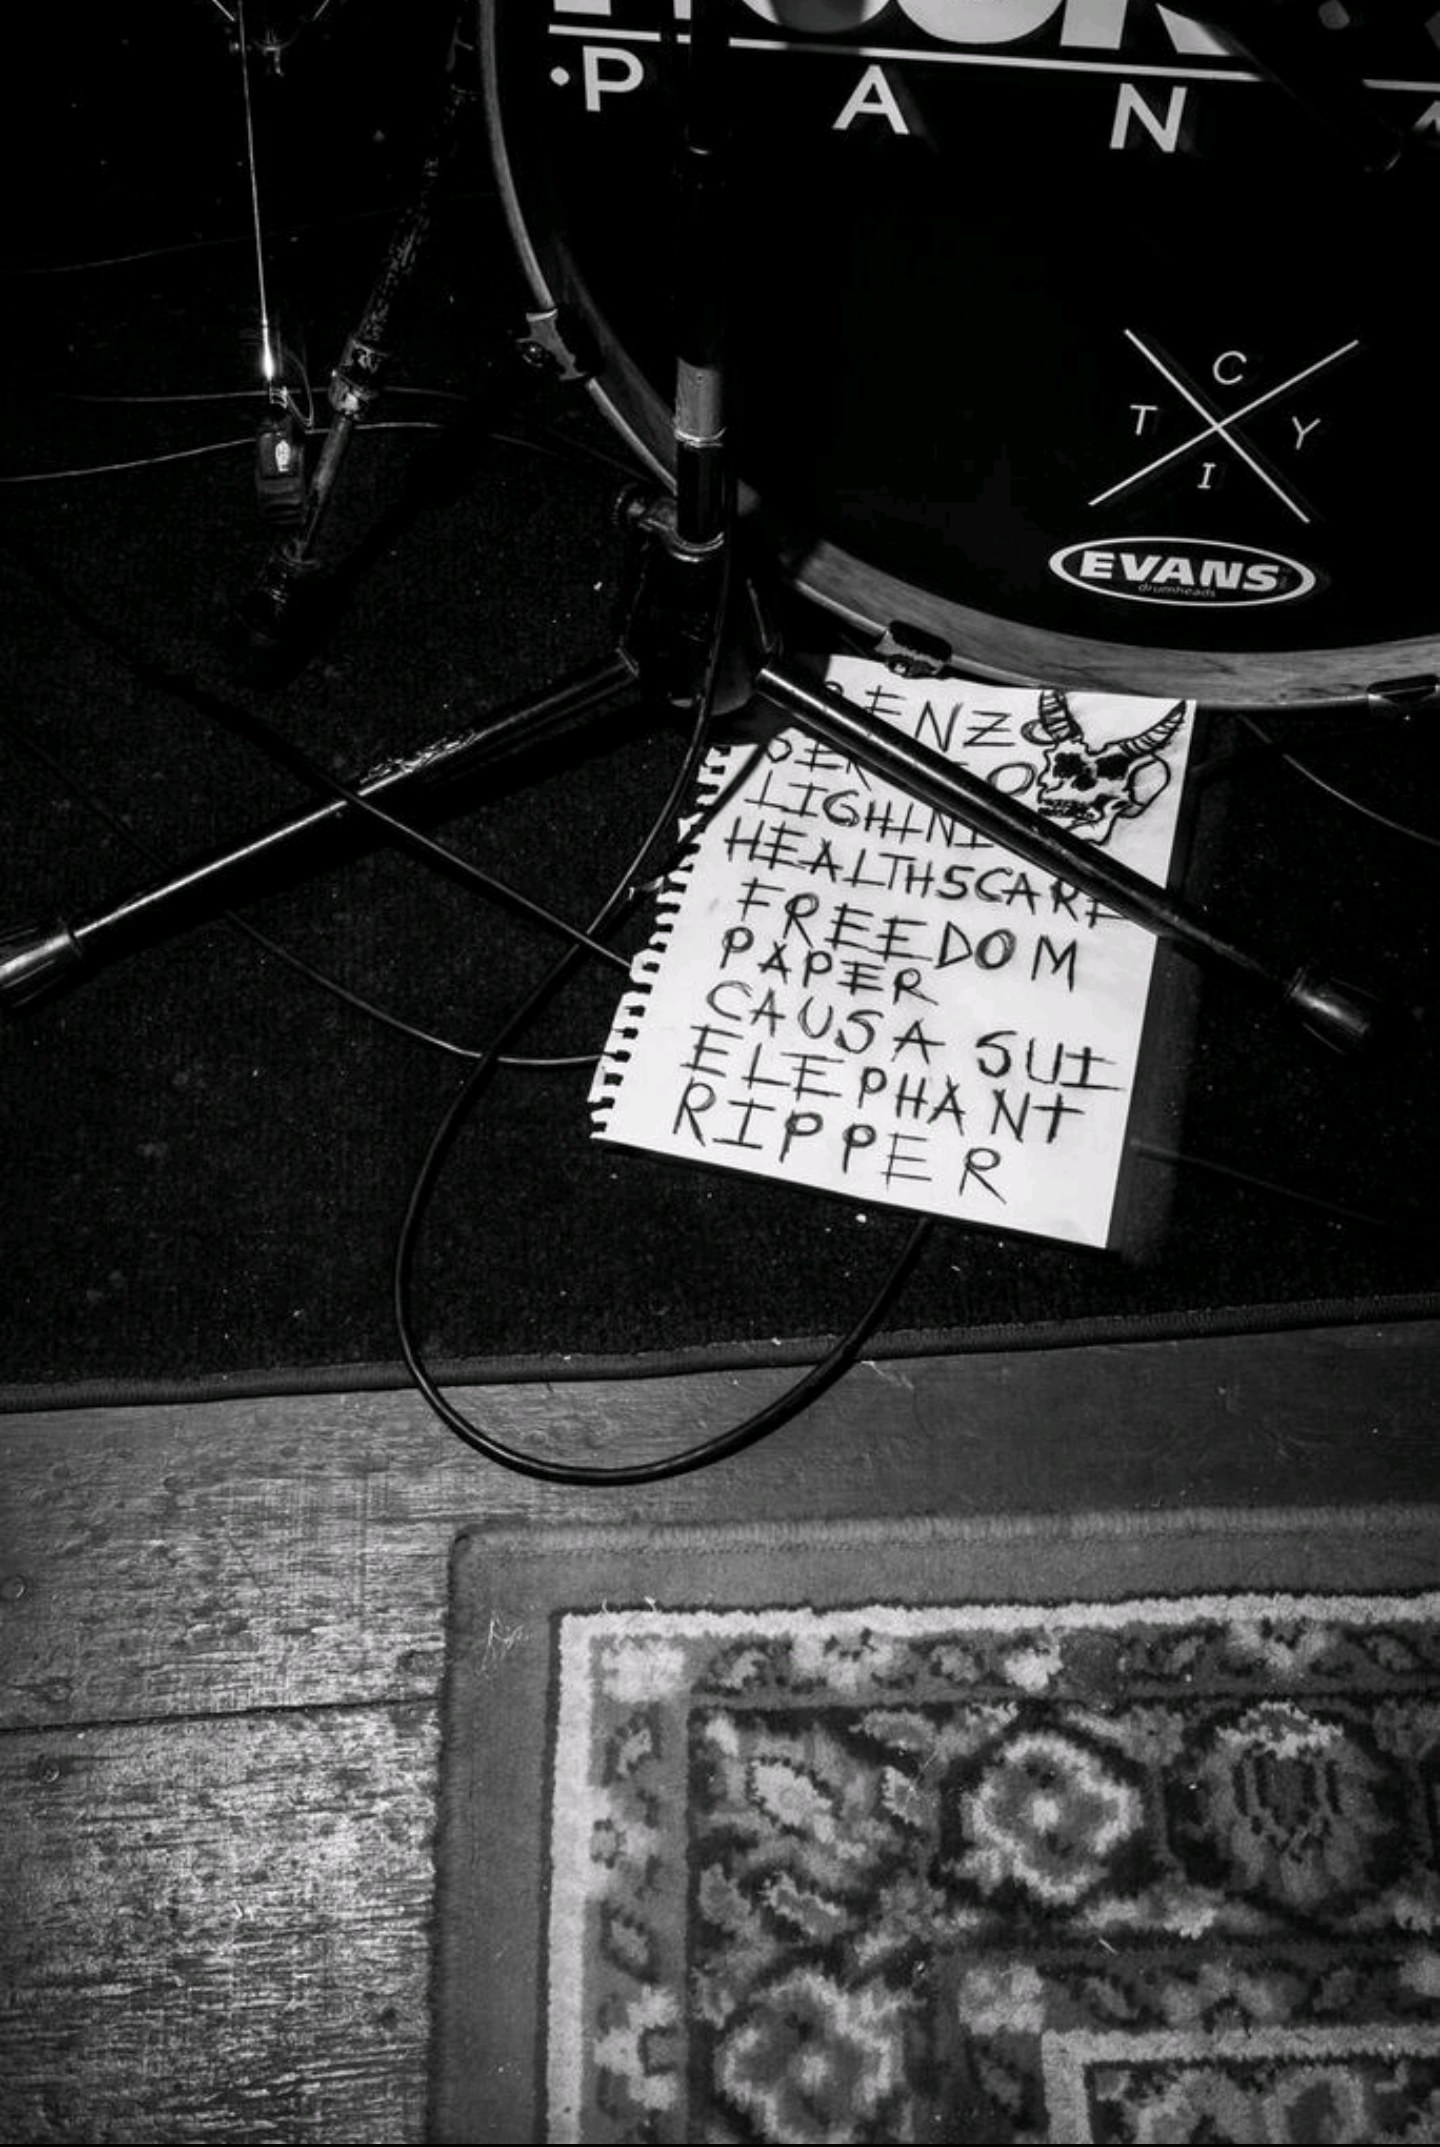 •P A N
C
T Y
I
EVANS
drumheads
HEALTHSCARE
FREEDOM
PAPER
CAUSA SUI
ELEPHANT
RIPPER